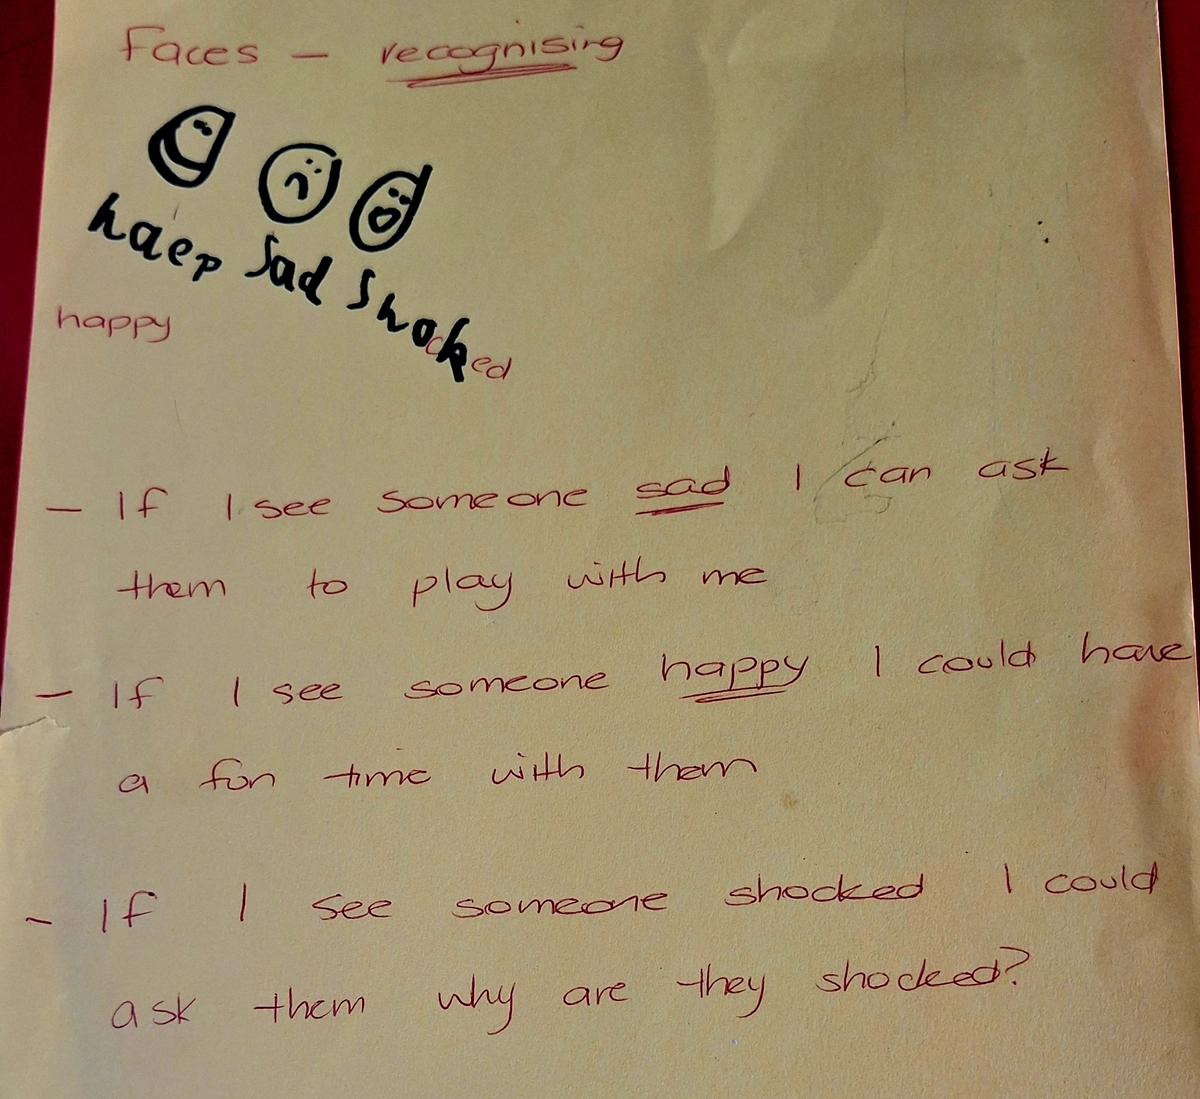 Faces - recognising
haep sad shoked
happy
- If I see someone sad I can ask
them to play with me
- If I see someone happy I could have
a fun time with them
- If I see someone shocked I could
ask them why are they shocked?